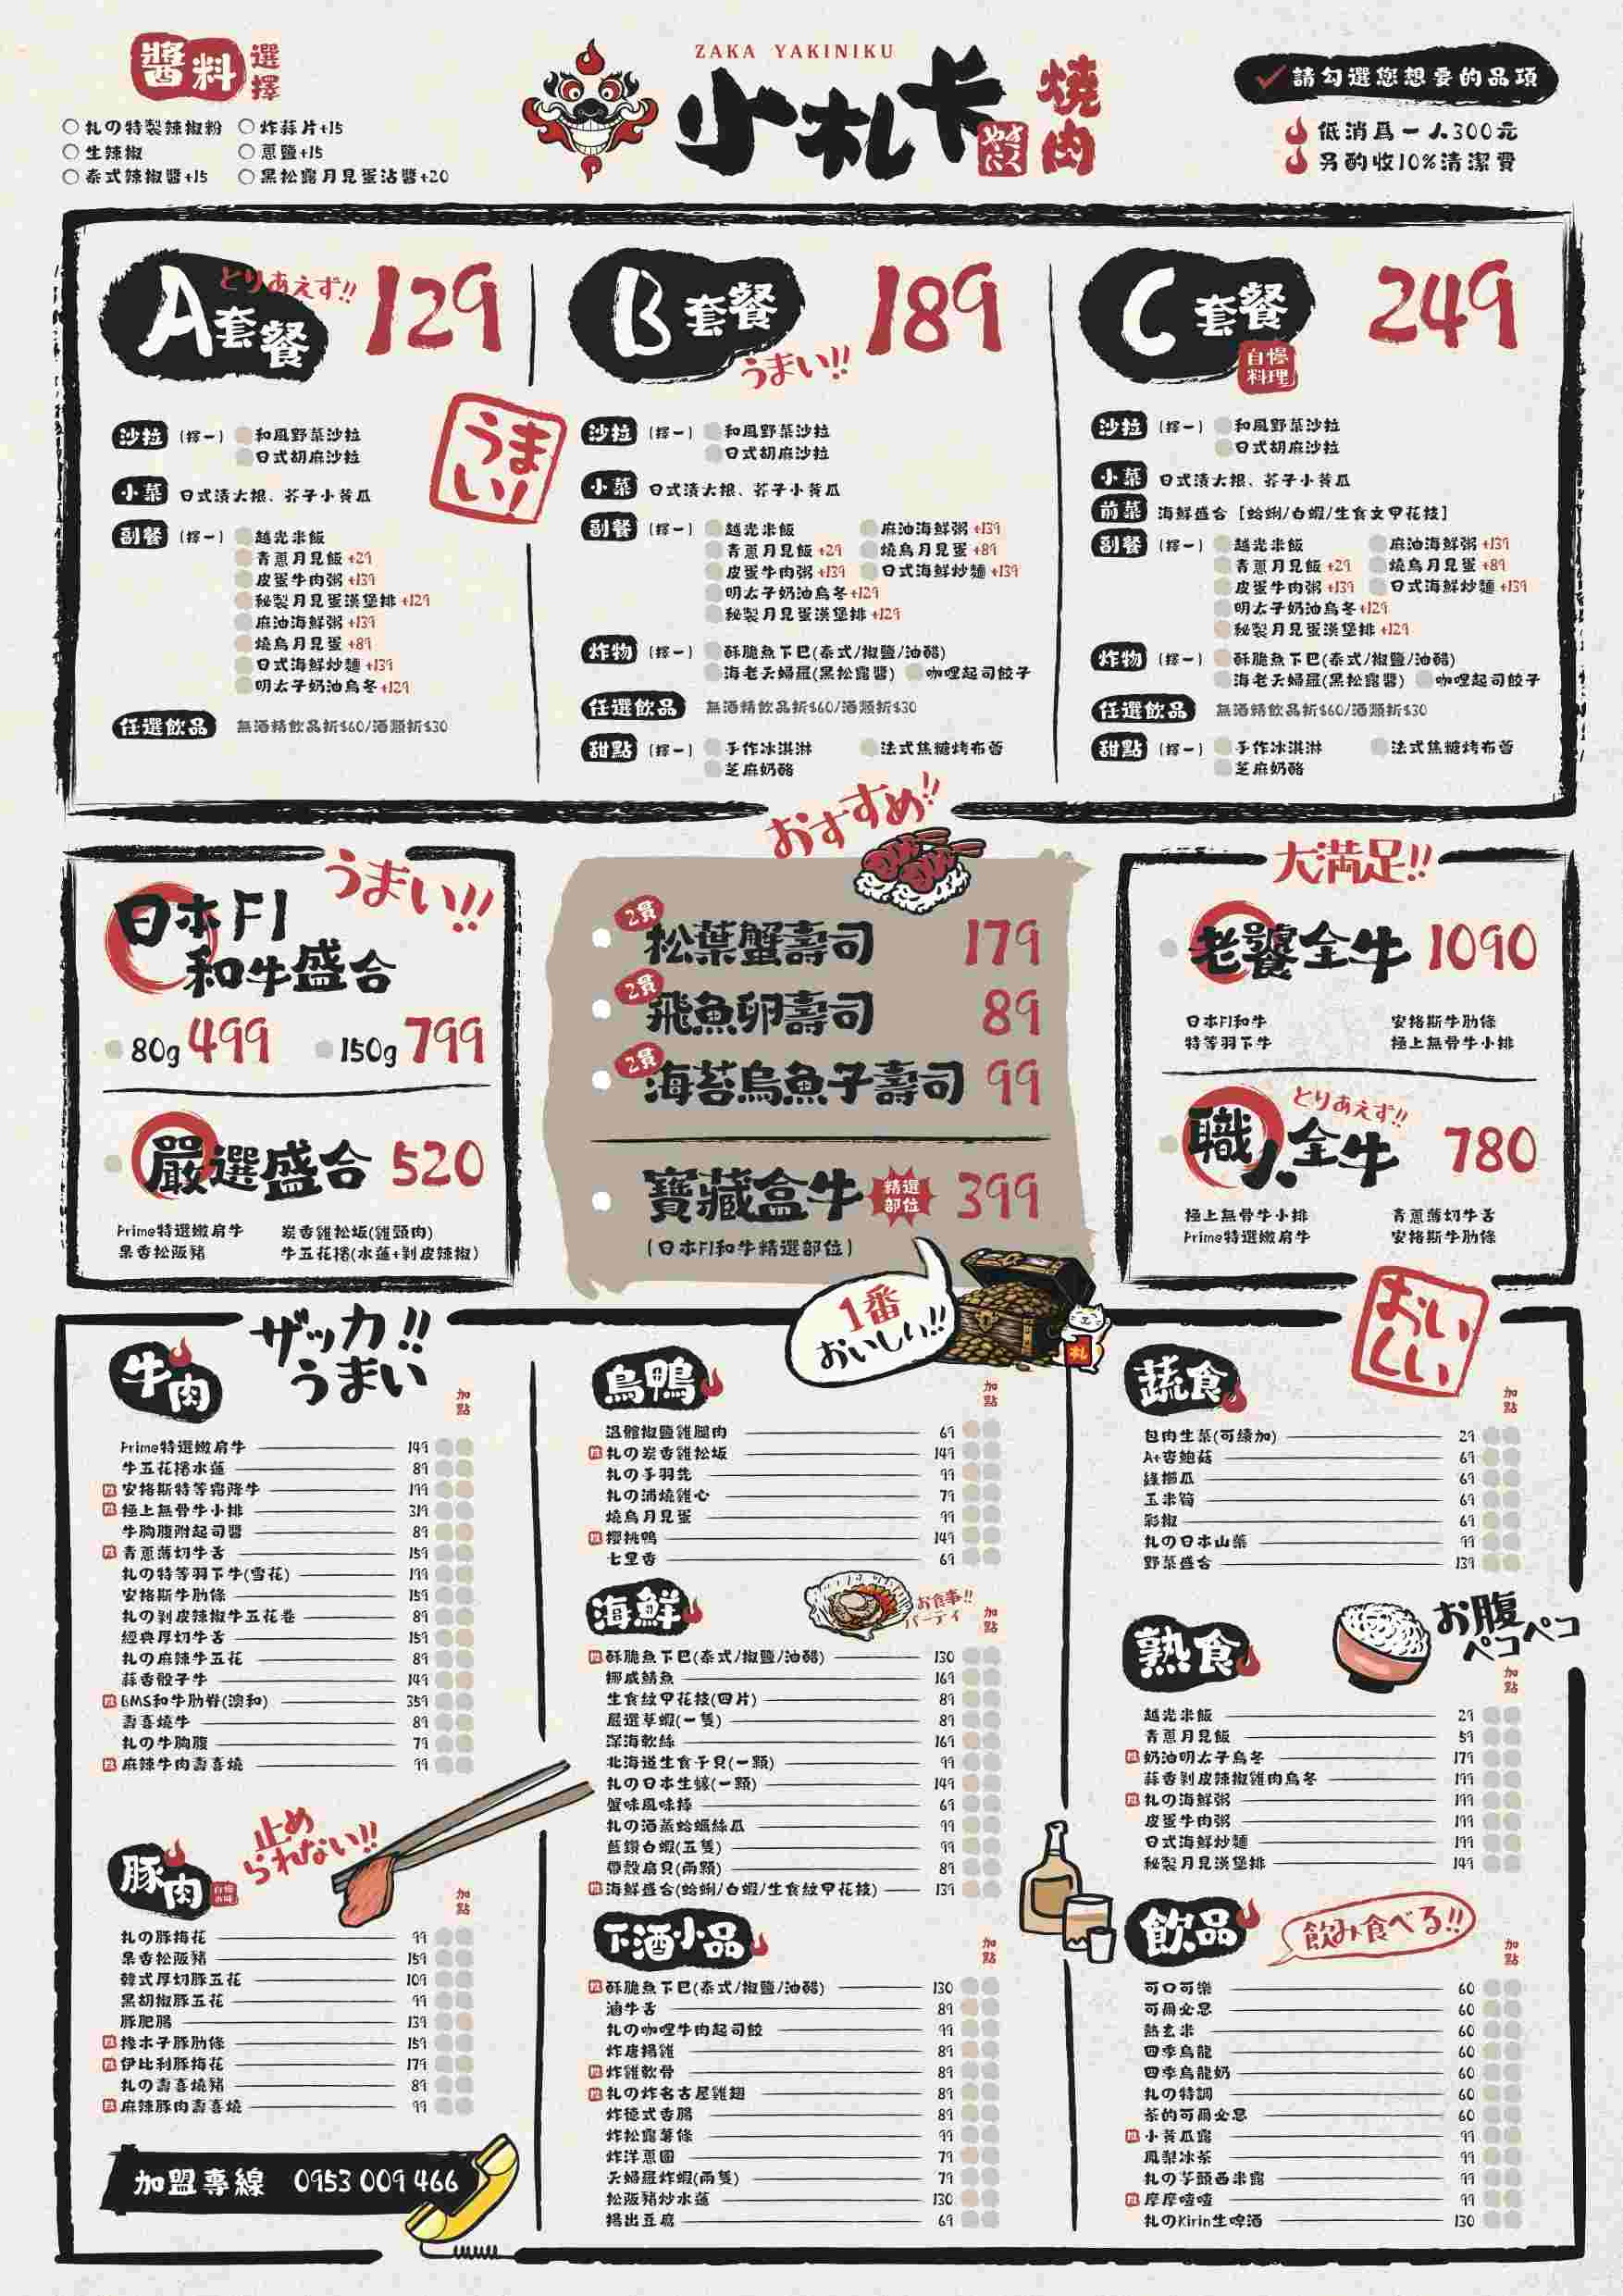 醬料選擇
札の特製辣椒粉
炸蒜片+15
生辣椒
蔥鹽+15
泰式辣椒醬+15
黑松露月見蛋沾醬+20
ZAKA YAKINIKU
小札卡
燒肉
請勾選您想要的品項
低消爲一人300元
另酌收10%清潔費
A套餐
とりあえず!!
129
沙拉 (擇一) 和風野菜沙拉
日式胡麻沙拉
小菜 日式漬大根、芥子小黃瓜
副餐 (擇一) 越光米飯
青蔥月見飯 +29
皮蛋牛肉粥 +139
秘製月見蛋漢堡排 +129
麻油海鮮粥 +139
燒鳥月見蛋 +89
日式海鮮炒麵 +139
明太子奶油烏冬 +129
任選飲品 無酒精飲品折$60/酒類折$30
うまい!
B套餐
うまい!!
189
沙拉 (擇一) 和風野菜沙拉
日式胡麻沙拉
小菜 日式漬大根、芥子小黃瓜
副餐 (擇一) 越光米飯 麻油海鮮粥 +139
青蔥月見飯 +29 燒鳥月見蛋 +89
皮蛋牛肉粥 +139 日式海鮮炒麵 +139
明太子奶油烏冬 +129
秘製月見蛋漢堡排 +129
炸物 (擇一) 酥脆魚下巴(泰式/椒鹽/油醋)
海老天婦羅(黑松露醬) 咖哩起司餃子
任選飲品 無酒精飲品折$60/酒類折$30
甜點 (擇一) 手作冰淇淋 法式焦糖烤布蕾
芝麻奶酪
C套餐
自慢料理
249
沙拉 (擇一) 和風野菜沙拉
日式胡麻沙拉
小菜 日式漬大根、芥子小黃瓜
前菜 海鮮盛合 [蛤蜊/白蝦/生食文甲花枝]
副餐 (擇一) 越光米飯 麻油海鮮粥 +139
青蔥月見飯 +29 燒鳥月見蛋 +89
皮蛋牛肉粥 +139 日式海鮮炒麵 +139
明太子奶油烏冬 +129
秘製月見蛋漢堡排 +129
炸物 (擇一) 酥脆魚下巴(泰式/椒鹽/油醋)
海老天婦羅(黑松露醬) 咖哩起司餃子
任選飲品 無酒精飲品折$60/酒類折$30
甜點 (擇一) 手作冰淇淋 法式焦糖烤布蕾
芝麻奶酪
うまい!!
日本F1
和牛盛合
80g 499 150g 799
嚴選盛合 520
Prime特選嫩肩牛 炭香雞松坂(雞頸肉)
果香松阪豬 牛五花捲(水蓮+剝皮辣椒)
おすすめ!!
2貫 松葉蟹壽司 179
2貫 飛魚卵壽司 89
2貫 海苔烏魚子壽司 99
寶藏盒牛 精選部位 399
(日本F1和牛精選部位)
1番
おいしい!!
札
大満足!!
老饕全牛 1090
日本F1和牛 安格斯牛肋條
特等羽下牛 極上無骨牛小排
とりあえず!!
職人全牛 780
極上無骨牛小排 青蔥薄切牛舌
Prime特選嫩肩牛 安格斯牛肋條
おいしい
ザッカ!!
うまい
牛肉
加點
Prime特選嫩肩牛 149
牛五花捲水蓮 89
推 安格斯特等霜降牛 199
推 極上無骨牛小排 319
牛胸腹附起司醬 89
推 青蔥薄切牛舌 159
札の特等羽下牛(雪花) 199
安格斯牛肋條 159
札の剝皮辣椒牛五花卷 89
經典厚切牛舌 159
札の麻辣牛五花 89
蒜香骰子牛 149
推 BMS和牛肋脊(澳和) 359
壽喜燒牛 89
札の牛胸腹 79
推 麻辣牛肉壽喜燒 99
止められない!!
豚肉
加點
札の豚梅花 99
果香松阪豬 159
韓式厚切豚五花 109
黑胡椒豚五花 99
豚肥腸 139
推 橡木子豚肋條 159
推 伊比利豚梅花 179
札の壽喜燒豬 89
推 麻辣豚肉壽喜燒 99
加盟專線 0953 009 466
鳥鴨
加點
溫體椒鹽雞腿肉 69
推 札の炭香雞松坂 149
札の手羽先 99
札の浦燒雞心 79
燒鳥月見蛋 99
推 櫻桃鴨 149
七里香 69
海鮮
お食事!!
パーティ
加點
推 酥脆魚下巴(泰式/椒鹽/油醋) 130
挪威鯖魚 169
生食紋甲花枝(四片) 89
嚴選草蝦(一隻) 89
深海軟絲 169
北海道生食干貝(一顆) 99
札の日本生蠔(一顆) 149
蟹味風味棒 69
札の酒蒸蛤蠣絲瓜 99
藍鑽白蝦(五隻) 99
帶殼扇貝(兩顆) 89
推 海鮮盛合(蛤蜊/白蝦/生食紋甲花枝) 139
下酒小品
加點
推 酥脆魚下巴(泰式/椒鹽/油醋) 130
滷牛舌 89
札の咖哩牛肉起司餃 99
炸唐揚雞 89
推 炸雞軟骨 89
推 札の炸名古屋雞翅 89
炸德式香腸 89
炸松露薯條 99
炸洋蔥圈 79
天婦羅炸蝦(兩隻) 79
松阪豬炒水蓮 130
揚出豆腐 69
蔬食
加點
包肉生菜(可續加) 29
A+杏鮑菇 69
綠櫛瓜 69
玉米筍 69
彩椒 69
札の日本山藥 99
野菜盛合 139
お腹
ペコペコ
熟食
加點
越光米飯 29
青蔥月見飯 59
推 奶油明太子烏冬 179
蒜香剝皮辣椒雞肉烏冬 199
推 札の海鮮粥 199
皮蛋牛肉粥 199
日式海鮮炒麵 199
秘製月見漢堡排 149
飲品
飲み食べる!!
加點
可口可樂 60
可爾必思 60
熱玄米 60
四季烏龍 60
四季烏龍奶 60
札の特調 60
茶的可爾必思 60
推 小黃瓜露 99
鳳梨冰茶 99
札の芋頭西米露 99
推 摩摩喳喳 99
札のKirin生啤酒 130